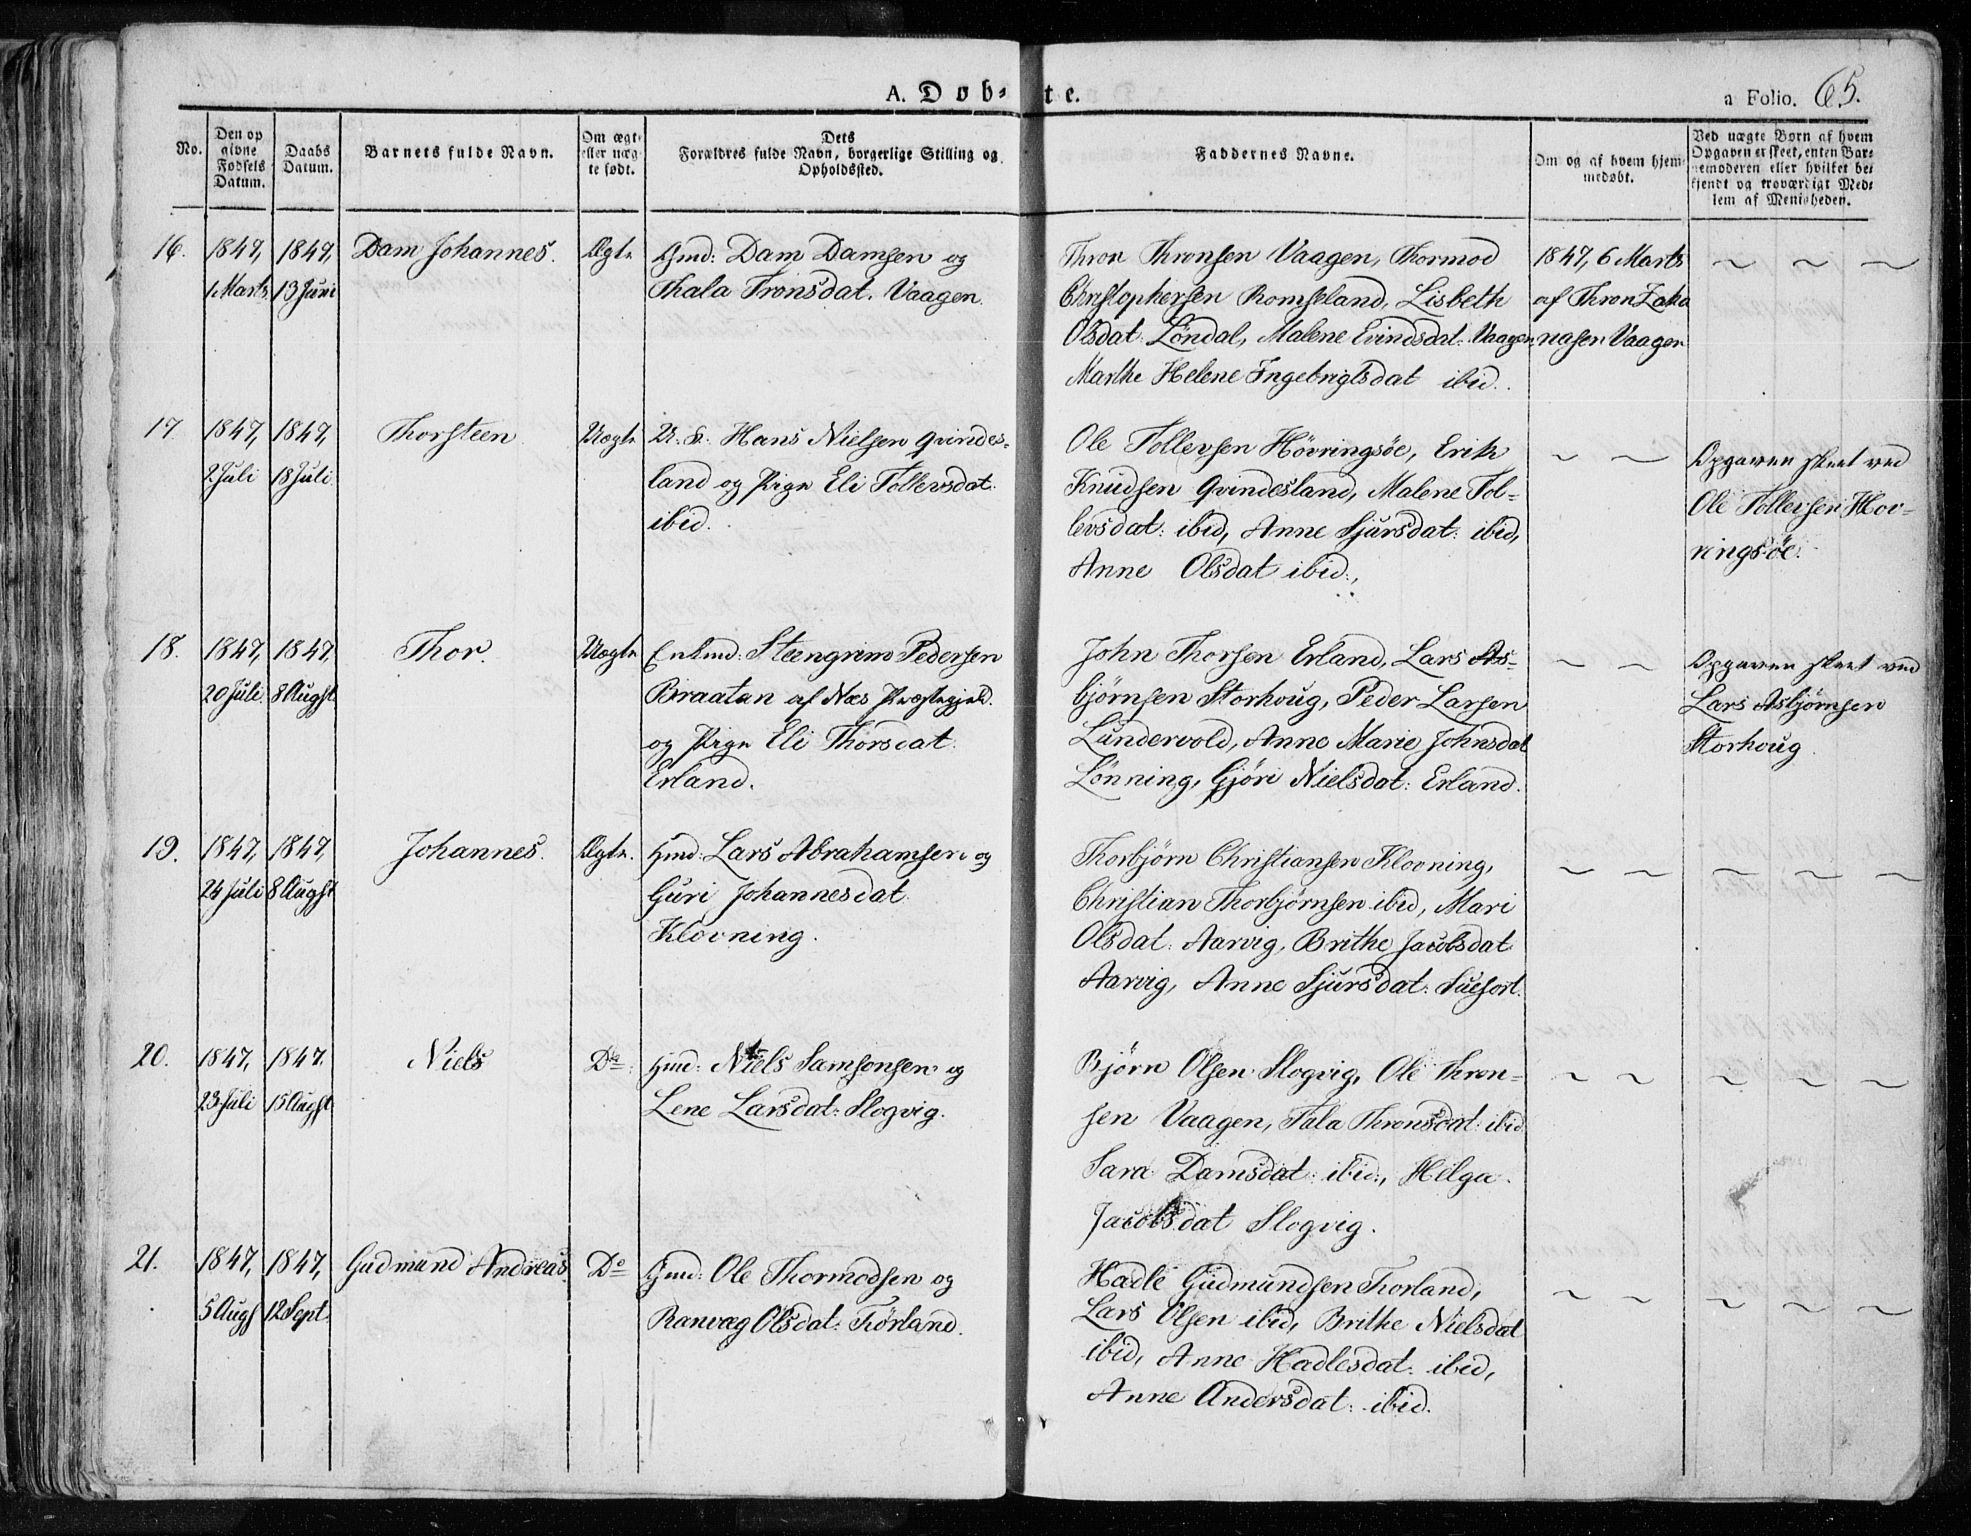 A. Døb-te.
a Folio. 65.
No.
Den op
givne
Fødsels
Datum.
Daabs
Datum.
Barnets fulde Navn.
Om ægte
eller uæg-
te født.
Dets
Forældres fulde Navn, borgerlige Stilling og
Opholdssted.
Faddernes Navne.
Om og af hvem hjem-
medøbt.
Ved uægte Børn af hvem
Opgaven er skeet, enten Bar-
nemoderen eller hvilket be-
kjendt og troværdigt Med-
lem af Menigheden.
16.
1847,
1. Marts
1847,
13 Juni
Dam Johannes.
Ægte
Gmd: Dam Damsen og
Thala Tronsdat. Vaagen.
Thron Thronsen Vaagen, Thormod
Christophersen Romseland, Lisbeth
Olsdat: Løndal, Malene Evindsdat: Vaagen,
Marthe Helene Ingebrigtsdat ibid.
1847, 6 Marts
af Thron Zaka
nasen Vaagen
~ ~ ~
17
1847,
2. Juli
1847,
18 Juli.
Thorsteen
Uægte
U. K: Hans Nielsen Qvindes-
land og Pige Eli Tollevsdat:
ibid.
Ole Tollevsen Hövringsöe, Erik
Knudsen Qvindesland, Malene Tol-
levsdat: ibid, Anne Sjursdat: ibid,
Anne Olsdat ibid.,
~ ~
Opgaven skeet ved
Ole Tollevsen Höv-
ringsöe.
18.
1847,
20 Juli.
1847,
8 Augst
Thor.
Uægte
Enkmd: Steengrim Pedersen
Braaten af Næs Præstegjeld.
og Pige Eli Thorsdat:
Erland.
John Thorsen Erland, Lars As-
bjørnsen Storhoug, Peder Larsen
Lundervold, Anne Marie Johnsdat
Lønning, Gjøri Nielsdat: Erland.
~ ~
Opgaven skeet ved
Lars Asbjørnsen
Storhoug.
19.
1847,
24 Juli
1847,
8 Augst
Johannes.
Ægte.
Gmd: Lars Abrahamsen og
Guri Johannesdat
Klovning.
Thorbjørn Christiansen Klovning,
Christian Thorbjørnsen ibid, Mari
Olsdat: Aarvig, Brithe Jacobsdat
Aarvig, Anne Sjursdat:
~ ~ ~ ~ ~
20.
1847,
23. Juli
1847.
15 Augst
Niels
Do:
Gmd: Niels Samsonsen og
Lene Larsdat: Slogvig.
Bjørn Olsen Slogvig, Ole Thron-
sen Vaagen, Tala Thronsdat: ibid
Sara Damsdat: ibid:, Helga
Jacobsdat Slogvig.
~ ~ ~ ~ ~
21.
1847,
5 Augs
1847,
12 Sept.
Gudmund Andreas
Do
Gmd: Ole Thormodsen og
Ranvæg Olsdat: Tørland.
Hadle Gudmundsen Torland,
Lars Olsen ibid, Brithe Nielsdat
ibid, Anne Hadlesdat: ibid,
Anne Andersdat: ibid.
~ ~ ~ ~ ~